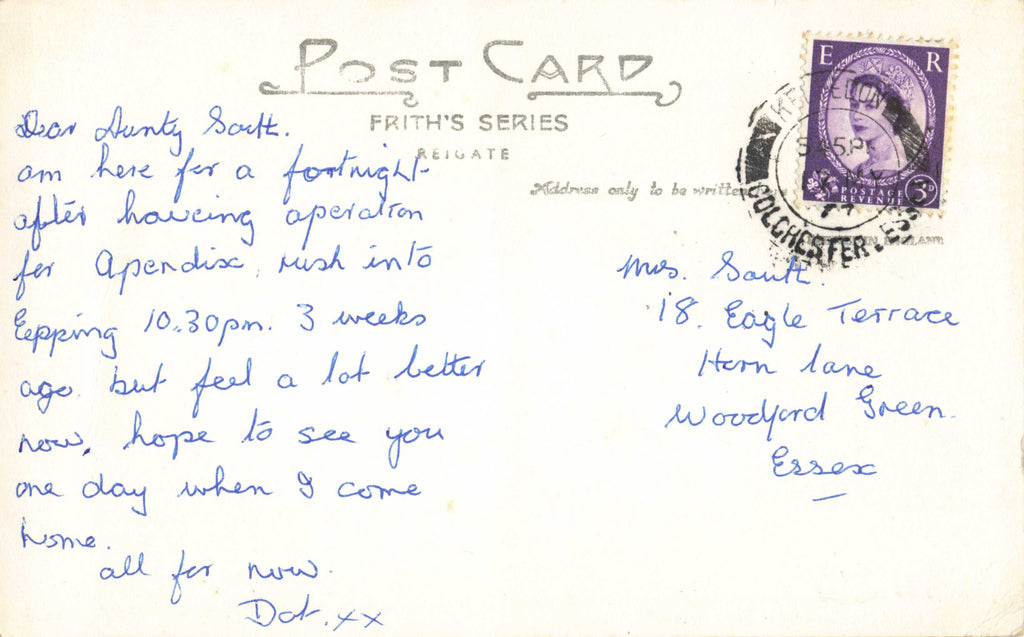 POST CARD
FRITH'S SERIES
REIGATE
Address only to be written
E R
POSTAGE
REVENUE
3D
KELVEDON
5.45PM
MY
COLCHESTER. ESSEX
IN ENGLAND
Dear Aunty South.
am here for a fortnight
after haveing operation
for Apendix, rush into
Epping 10.30pm. 3 weeks
ago. but feel a lot better
now, hope to see you
one day when I come
home.
all for now.
Dot. xx
Mrs. South.
18. Eagle Terrace
Horn lane
Woodford Green.
Essex